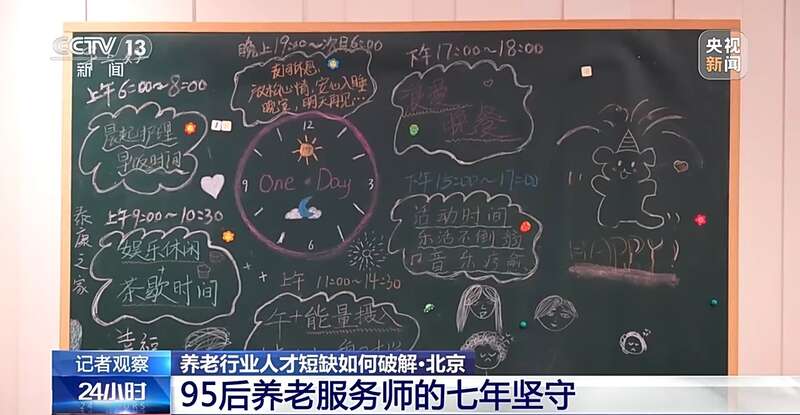 CCTV 13
新闻
央视
新闻
上午6:00~8:00
晨起护理
早饭时间
晚上19:00~次日6:00
夜间休息
放松心情,安心入睡
晚安,明天再见…
下午17:00~18:00
晚餐
12
3
6
9
One Day
下午15:00~17:00
活动时间
乐活不倒翁
音乐疗愈
泰康之家
上午9:00~10:30
娱乐休闲
+
茶歇时间
上午 11:00~14:30
午+能量投入
幸福
HAPPY!
记者观察
24小时
养老行业人才短缺如何破解·北京
95后养老服务师的七年坚守